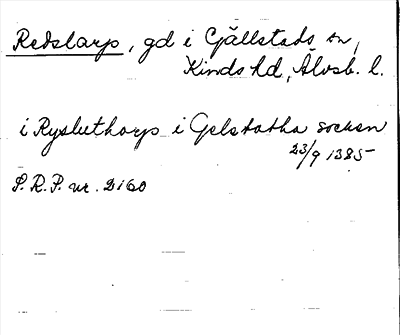 Redslarp, gd i Gällstads sn,
Kinds hd, Älvsb. l.
i Rysluthorp i Gelstatha socken
23/9 1385
S.R.P. nr. 2160